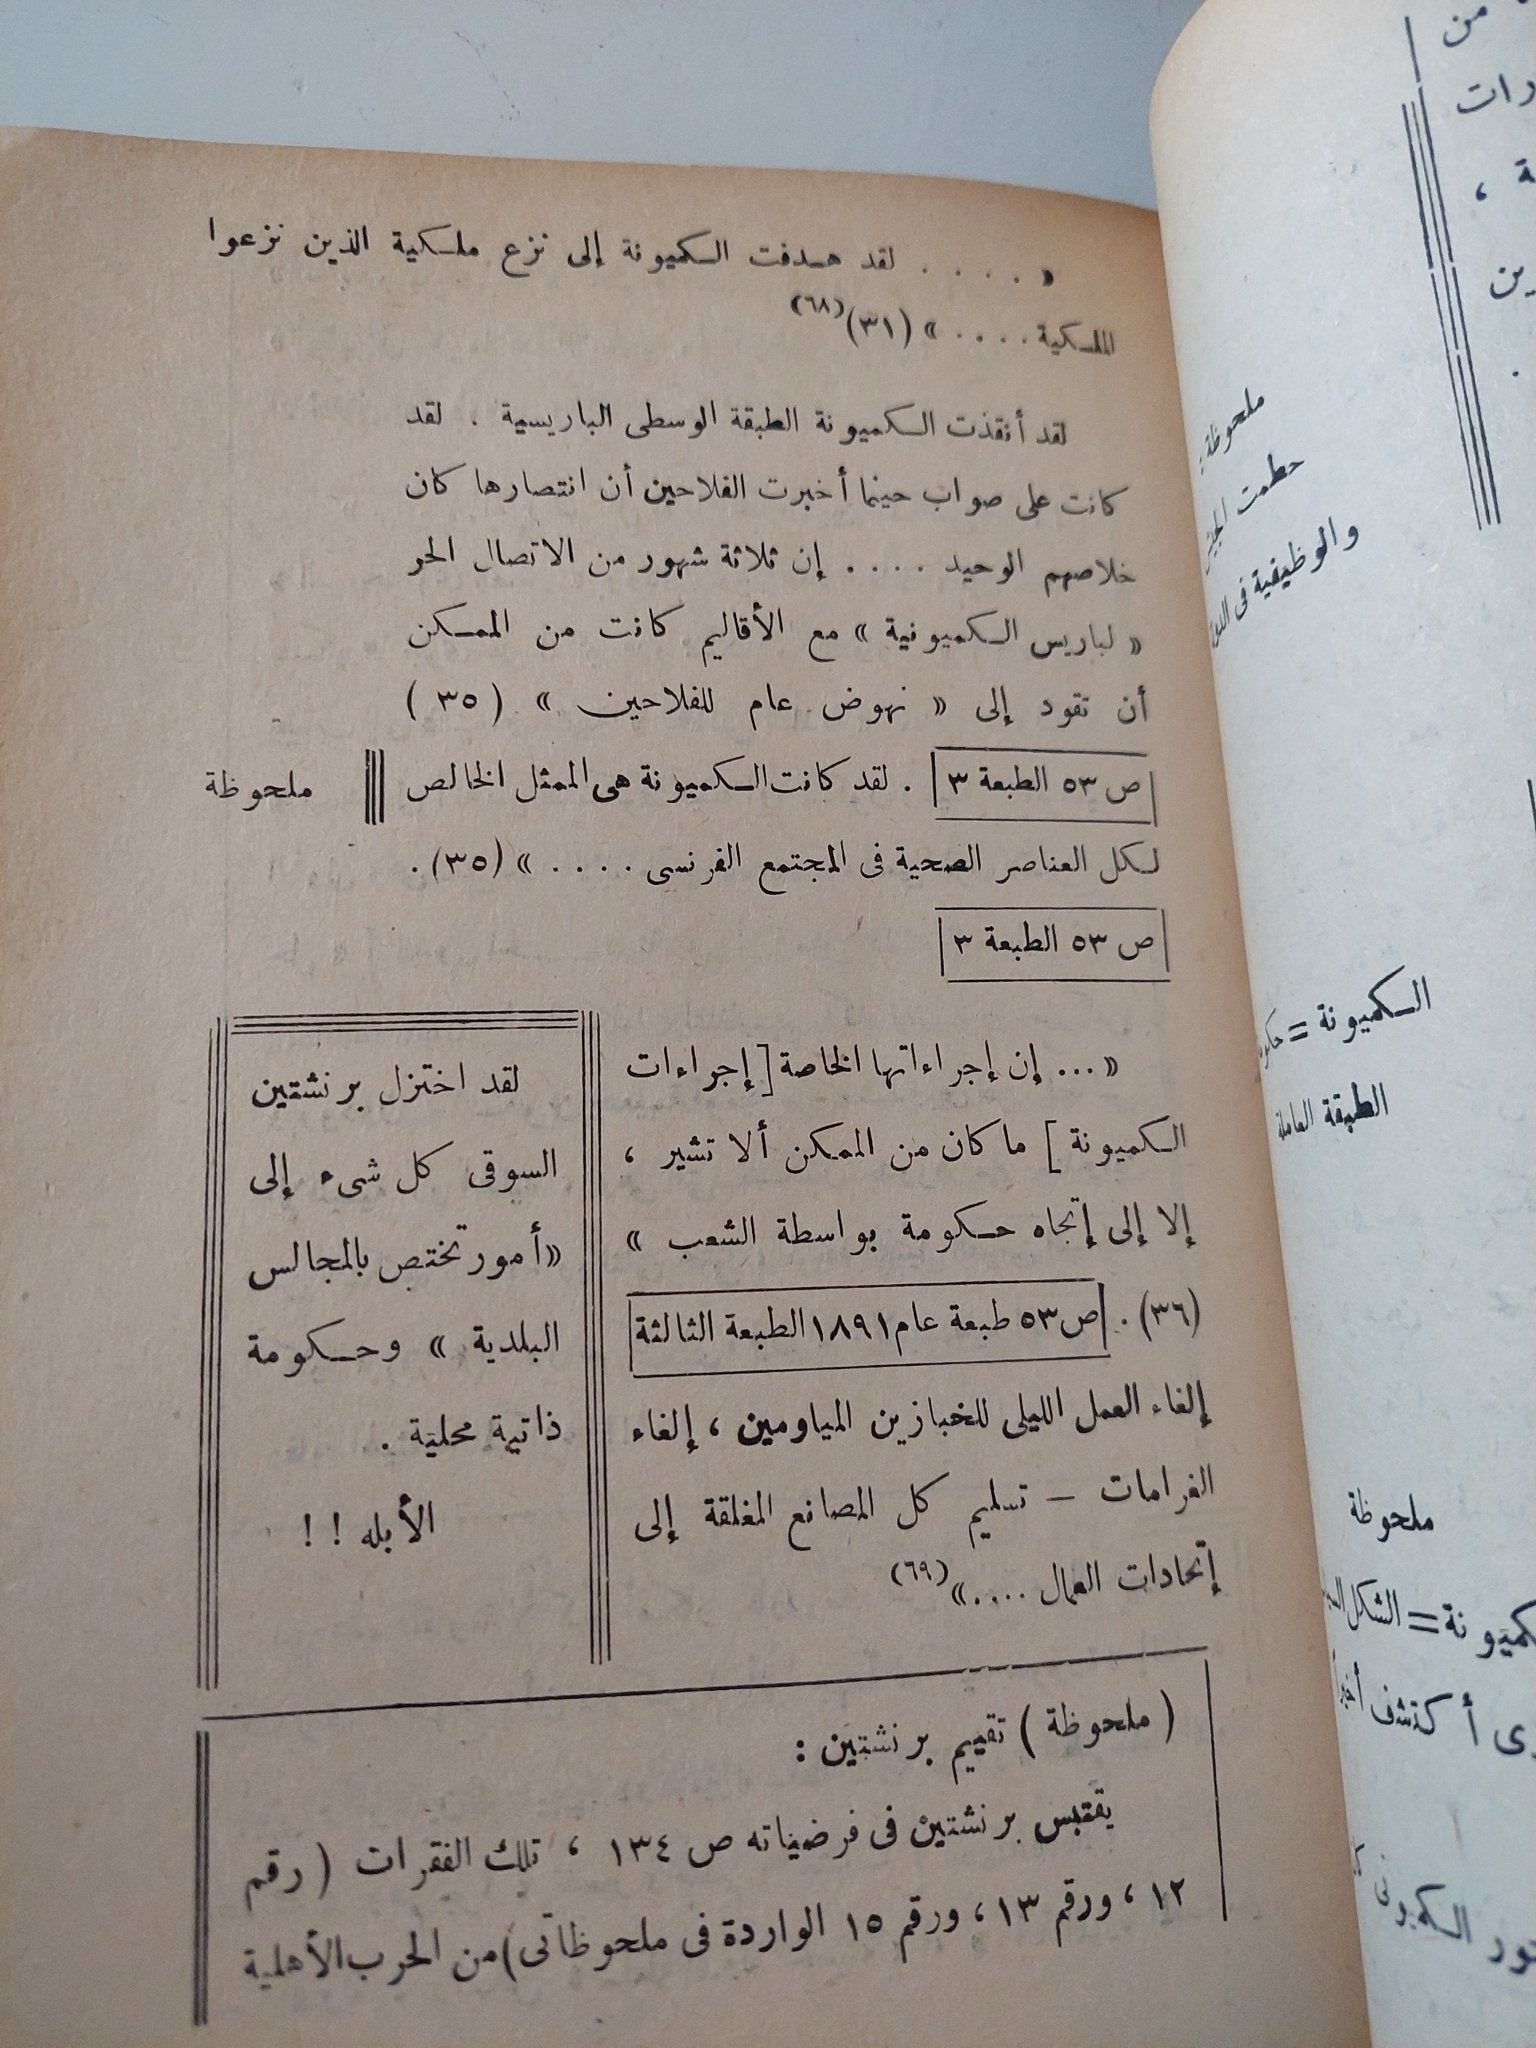 « . . . . لقد هدفت الكميونة إلى نزع ملكية الذين نزعوا
الملكية . . . . » (٣١)(٦٨)
لقد أنقذت الكميونة الطبقة الوسطى الباريسية . لقد
كانت على صواب حينما أخبرت الفلاحين أن انتصارها كان
خلاصهم الوحيد . . . . إن ثلاثة شهور من الاتصال الحر
« لباريس الكميونية » مع الأقاليم كانت من الممكن
أن تقود إلى « نهوض عام للفلاحين » (٣٥)
ص ٥٣ الطبعة ٣ . لقد كانت الكميونة هى الممثل الخالص
ملحوظة
لكل العناصر الصحية فى المجتمع الفرنسى . . . . » (٣٥).
ص ٥٣ الطبعة ٣
« ... إن إجراءاتها الخاصة [ إجراءات
الكميونة ] ما كان من الممكن ألا تشير ،
إلا إلى إتجاه حكومة بواسطة الشعب »
(٣٦) . ص ٥٣ طبعة عام ١٨٩١ الطبعة الثالثة
إلغاء العمل الليلى للخبازين المياومين ، إلغاء
الغرامات — تسليم كل المصانع المغلقة إلى
إتحادات العمال ....»(٦٩)
لقد اختزل برنشتين
السوقى كل شىء إلى
«أمور تختص بالمجالس
البلدية » وحكومة
ذاتية محلية .
الأبله ! !
( ملحوظة ) تقييم برنشتين :
يقتبس برنشتين فى فرضياته ص ١٣٤ ، تلك الفقرات ( رقم
١٢ ، ورقم ١٣ ، ورقم ١٥ الواردة فى ملحوظاتى) من الحرب الأهلية
من
ملحوظة :
حطمت
والوظيفية فى
الكميونة =
الطبقة العاملة
ملحوظة
= الشكل
أكتشف